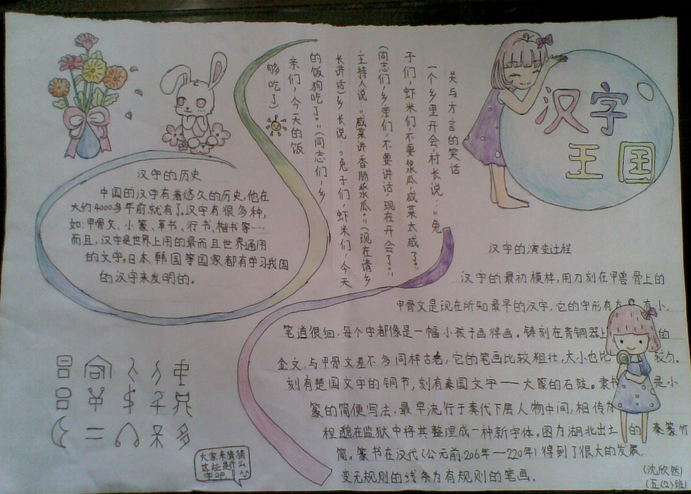 汉字
王国
关与方言的笑话
一个乡里开会,村长说:“兔
子们,虾米们,不要浆瓜,咸菜太咸了。”
(同志们,乡里们,不要讲话,现在开会了。)
主持人说:“咸菜请香肠浆瓜。”(现在请乡
长讲话)乡长说:“兔子们,虾米们,今天
的饭狗吃了。”(同志们,乡
亲们,今天的饭
够吃了)
汉字的历史
中国的汉字有着悠久的历史,他在
大约4000多年前就有了,汉字有很多种,
如:甲骨文、小篆、草书、行书、楷书等…
而且,汉字是世界上用的最而且世界通用
的文字,日本韩国等国家都有学习我国
的汉字来发明的。
汉字的演变过程
汉字的最初模样,用刀刻在甲兽骨上的
甲骨文是现在所知最早的汉字,它的字形有大有小,
笔道很细,每个字都像是一幅小孩子画得画。铸刻在青铜器上的
金文,与甲骨文差不多同样古老,它的笔画比较粗壮,大小也比较匀。
刻有楚国文字的铜节,刻有秦国文字——大篆的石鼓。隶书是小
篆的简便写法,最早流行于秦代下层人物中间,相传
程邈在监狱中将其整理成一种新字体,图为湖北出土的秦篆竹
简。篆书在汉代(公元前206年—220年)得到了很大的发展
变无规则的线条为有规则的笔画。
大家来猜猜
这些是什么
字吧
沈欣然
(五(2)班)